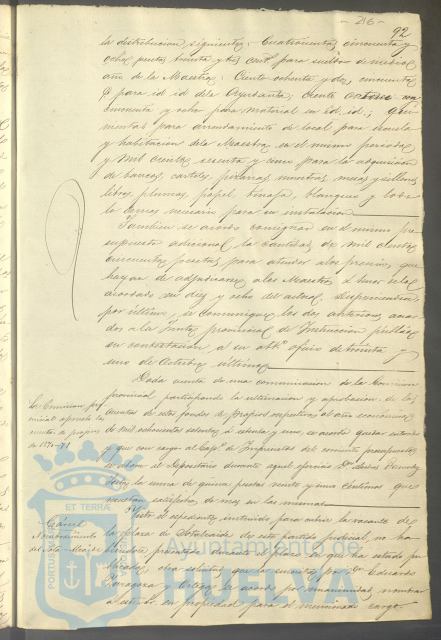 - 26 -
92
la distribucion siguiente: Cuatrocientas cincuenta y
ocho pesetas treinta y tres cent.s para sueldo de medio
año de la Maestra; Ciento ochenta y dos, cincuenta
para id id de la Ayudanta; ciento
cincuenta y ocho para material en id. id.; qui-
nientas para arrendamiento de local para escuela
y habitacion de la Maestra en el mismo periodo
y mil ciento sesenta y cinco para la adquisicion
de bancos, carteles, pizarras, muestras, mesas y sillones
libros, plumas, papel, tinaja, blanqueo y todo
lo demas necesario para su instalacion.
Tambien se acordó consignar en el mismo pre-
supuesto adicional la cantidad de mil
cincuenta pesetas para atender a los premios que
hayan de adjudicarse a los Maestros á tenor de lo
acordado en diez y ocho del actual. Disponiendose,
por último, se comuniquen los dos anteriores acuer-
dos a la Junta provincial de Instruccion publica
en contestacion a su att.º oficio de treinta y
uno de Octubre último.
Dada cuenta de una comunicacion de la Comision
provincial participando la ultimacion y aprobacion de las
La Comision pro-
vincial aprueba las
cuentas de propios
de 1870-71
cuentas de estos fondos de Propios respectivas al año económico
de mil ochocientos setenta á setenta y uno, se acordó quedar enterado
y que con cargo al Cap.º de Imprevistos del corriente presupuesto
se abone al Depositario durante aquel ejercicio D.
la suma de quince pesetas veinte y un centimos que
resultan satisfechas de mas en las mismas.
Visto el expediente instruido para cubrir la vacante de
Carcel
Nombramiento
de Alcaide
la plaza de Alcaide de este partido judicial, no ha-
biendose presentado durante el plazo en que ha estado pu-
blicada, otra solicitud que la suscrita por D. Eduardo
Zaragoza y Ortega, se acordó por unanimidad, nombrar
a este en propiedad para el mencionado cargo.
PORTUS MARIS
ET TERRÆ
Ayuntamiento de
HUELVA